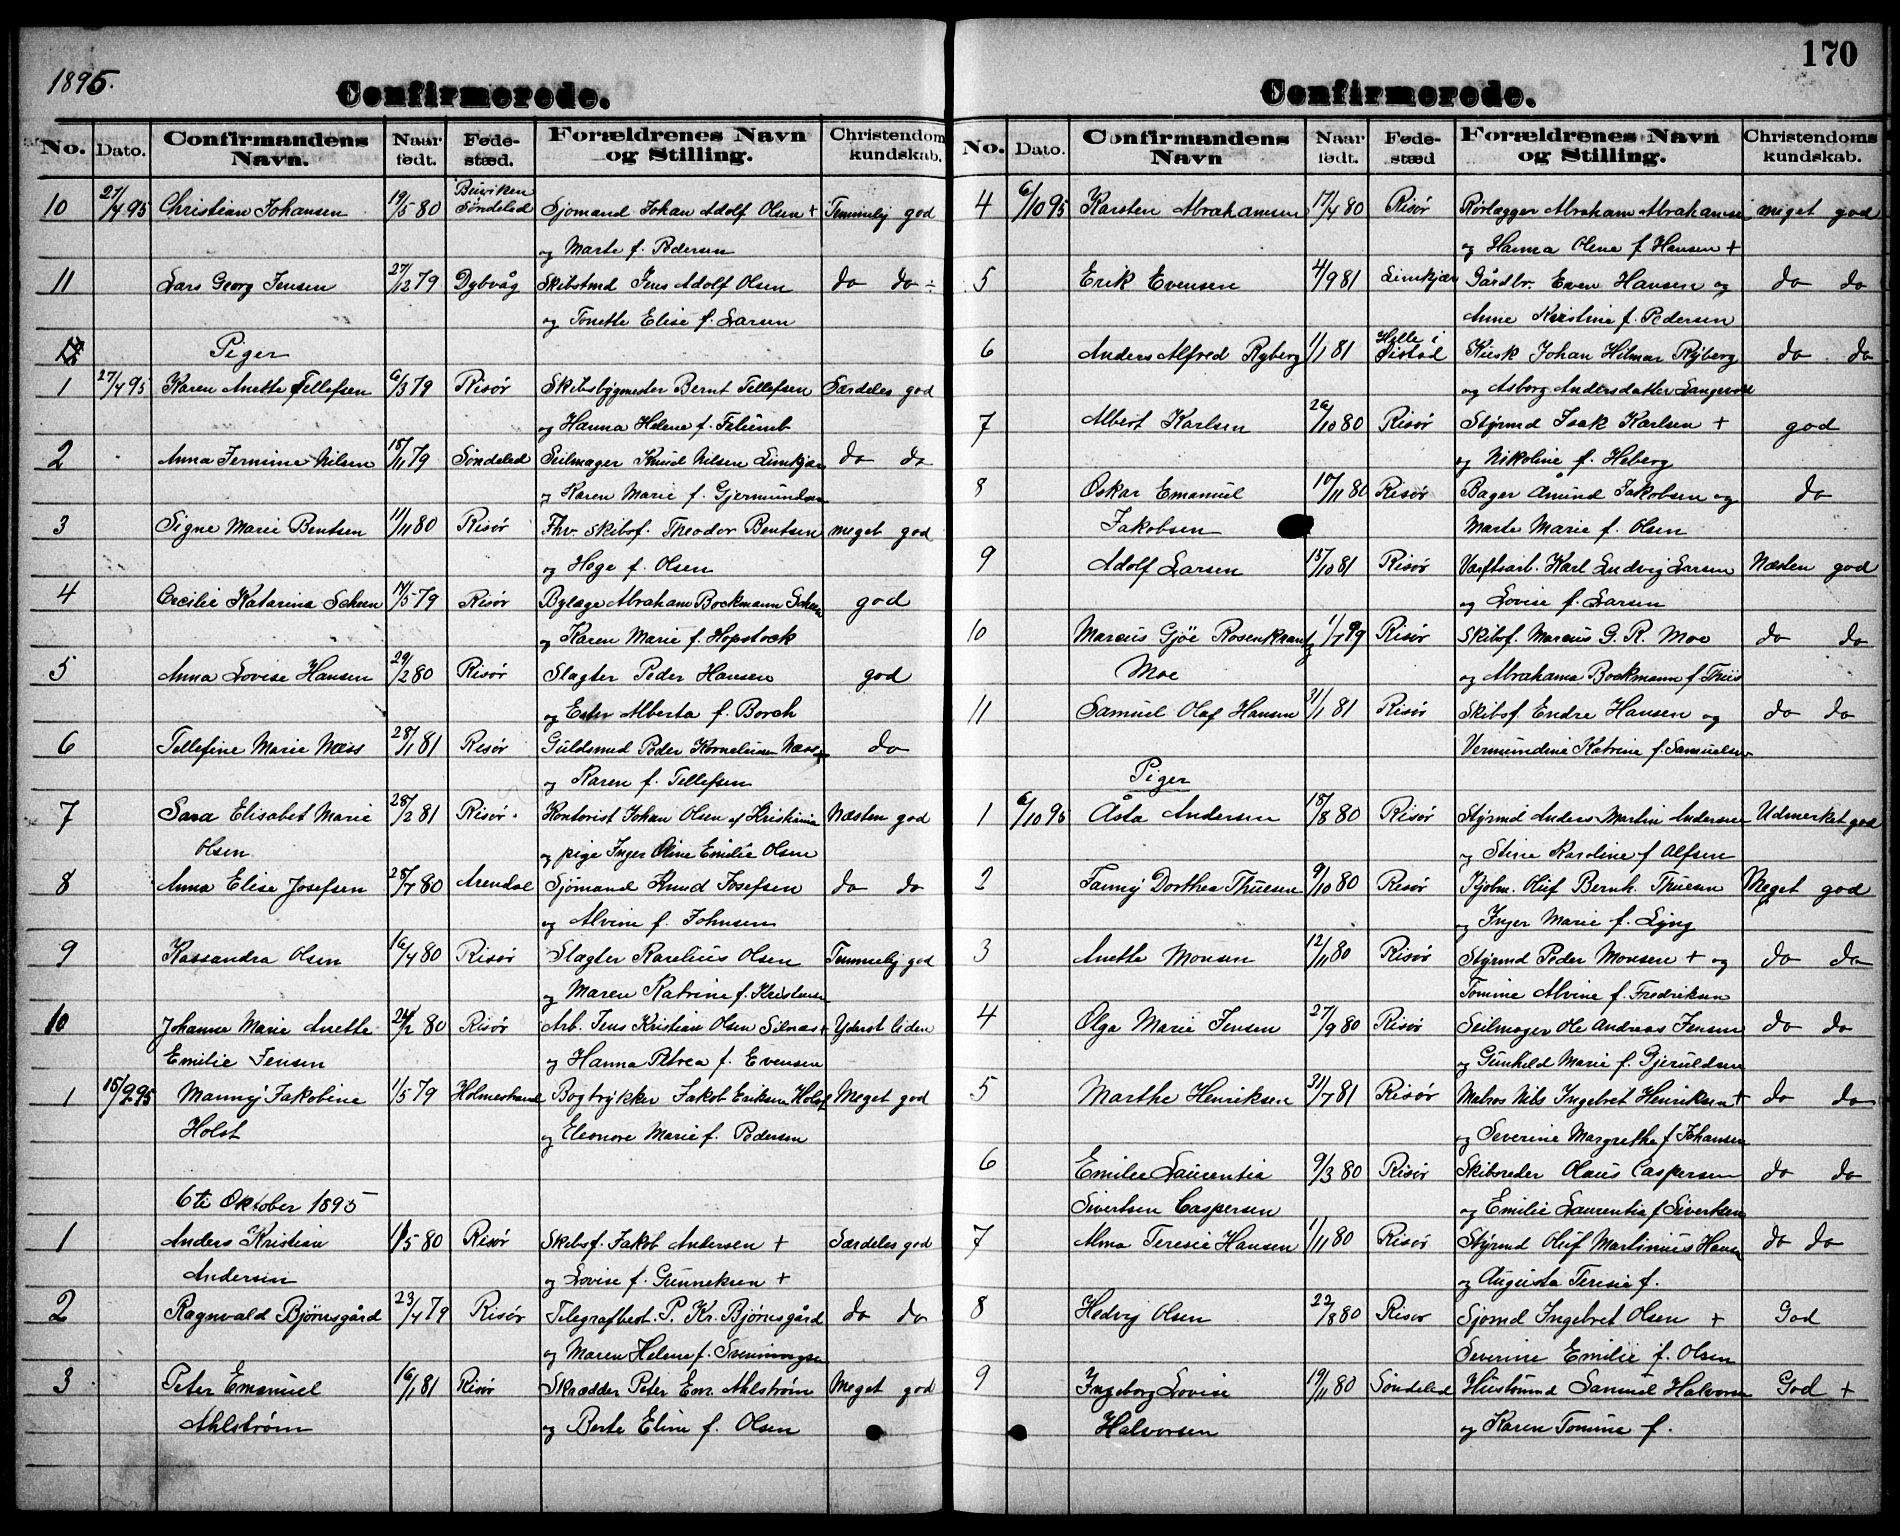 1895.
Confirmerede.
No. Dato. Confirmandens Navn. Naar født. Fødested. Forældrenes Navn og Stilling. Christendomskundskab.
10 27/4 95 Christian Johansen 19/5 80 Buviken Søndeled Sjømand Johan Adolf Olsen + Temmelig god
og Marte f. Pedersen
11 Lars Georg Jensen 27/12 79 Dybvåg Skibstmd Jens Adolf Olsen do do ÷
og Tonette Elise f. Larsen
Piger
1 27/4 95 Karen Anette Tellefsen 6/3 79 Risør Skibsbygmester Bernt Tellefsen Særdeles god
og Hanna Helene f.
2 Anna Jernine Nilsen 18/11 79 Søndeled Seilmager Knud Nilsen Limkjær do do
og Karen Marie f. Gjermundsen
3 Signe Marie Bentsen 11/11 80 Risør Fhv. Skibsf. Theodor Bentsen meget god
og Hege f. Olsen
4 Cecilie Katarina Scheen 14/5 79 Risør Bylæge Abraham Bockmann Scheen god
og Karen Marie f. Hopstock
5 Anna Lovise Hansen 29/2 80 Risør Slagter Peder Hansen god
og Ester Alberta f. Borch
6 Tellefine Marie Næss 28/1 81 Risør Guldsmed Peder Korneliusen Næss + do
og Karen f. Tellefsen
7 Sara Elisabet Marie 28/2 81 Risør Kontorist Johan Olsen af Kristiania Næsten god
Olsen og pige Inger Oline Emilie Olsen
8 Anna Elise Josefsen 28/7 80 Arendal Sjømand Knud Josefsen do do
og Alvine f. Johnsen
9 Kassandra Olsen 16/4 80 Risør Slagter Karelius Olsen Temmelig god
og Maren Katrine f. Kristensen
10 Johanne Marie Anette 24/2 80 Risør Arb. Jens Kristian Olsen Silnæs + Yderst liden
Emilie Jensen og Hanna Petrea f. Evensen
1 15/9 95 Manny Jakobine 1/5 79 Holmestrand Bogtrykker Jakob Eriksen Holst Meget god
Holst og Eleonore Marie f. Pedersen
6te Oktober 1895
1 Anders Kristian 11/5 80 Risør Skibsf. Jakob Andersen + Særdeles god
Andersen og Lovise f. Gunneksen +
2 Ragnvald Bjørnsgård 23/4 79 Risør Telegrafbest. P. Kr. Bjørnsgård do do
og Maren Helene f. Svenningsen
3 Peter Emanuel 16/1 81 Risør Skrædder Peter Em. Ahlstrøm Meget god
Ahlstrøm og Berte Eline f. Olsen
170
Confirmerede.
No. Dato. Confirmandens Navn Naar født. Fødested Forældrenes Navn og Stilling. Christendomskundskab.
4 6/10 95 Karsten Abrahamsen 17/4 80 Risør Rørlægger Abraham Abrahamsen meget god
og Hanna Olene f. Hansen +
5 Erik Evensen 4/9 81 Limkjær Gårdbr. Even Hansen og do do
Anne Kristine f. Pedersen
6 Anders Alfred Ryberg 1/1 81 Helle i Øistad Johan Hilmar Ryberg do do
og Asborg Andersdatter Langevold
7 Albert Karlsen 26/10 80 Risør Styrmd Isak Karlsen + god
og Nikoline f. Heberg
8 Oskar Emanuel 10/11 80 Risør Bager Åmund Jakobsen og do
Jakobsen Marte Marie f. Olsen
9 Adolf Larsen 15/10 81 Risør Værftsarb. Karl Ludvig Larsen Næsten god
og Lovise f. Larsen
10 Marcus Gjøe Rosenkrantz 1/7 79 Risør Skibsf. Marcus G. R. Moe do do
Moe og Abrahama Bockmann f. Thiis
11 Samuel Olaf Hansen 31/1 81 Risør Skibsf Endre Hansen og do do
Vermundine Katrine f. Samuelsen
Piger
1 6/10 95 Åsta Andersen 18/8 80 Risør Styrmd Anders Martin Andersen Udmerket god
og Stine Karoline f Alfsen
2 Fanny Dorthea Thuesen 9/10 80 Risør Kjobm. Oluf Bernh. Thuesen Meget god
og Inger Marie f. Lyng
3 Anette Monsen 12/11 80 Risør Styrmd Peder Monsen + og do do
Tomine Alvine f. Fredriksen
4 Olga Marie Jensen 27/9 80 Risør Seilmager Ole Andreas Jensen do do
og Gunhild Marie f. Gjeruldsen
5 Marthe Henriksen 31/7 81 Risør Matros Nils Ingebret Henriksen + do do
og Severine Margrethe f Johansen
6 Emilie Laurentia 9/3 80 Risør Skibsreder Olaus Caspersen do do
Sivertsen Caspersen og Emilie Laurentia f Sivertsen
7 Alma Teresie Hansen 1/11 80 Risør Styrmd Oluf Martinius Hansen do do
og Augusta Teresie f.
8 Hedvig Olsen 22/8 80 Risør Sjømd Ingebret Olsen + God
Severine Emilie f. Olsen
9 Ingeborg Lovise 19/11 80 Søndeled Hustømmd Samuel Halvorsen God +
Halvorsen og Karen Tomine f.